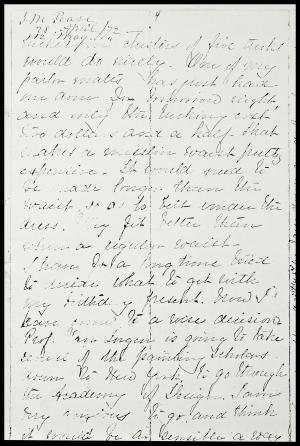 J M Pease 4
28 April /72
12 May /72
tucked in clusters of five tucks
would do nicely. One of my
parlor mates has just had
one done in common night
and only the tucking cost
two dollars and a half that
makes a muslin waist pretty
expensive. It would need to
be made longer than the
waist so as to belt under the
dress. They fit better than
when a regular waist.
I have for a long time tried
to decide what to get with
my birthday present. Now I
have come to a wise decision
Prof. Van Ingen is going to take
some of the painting scholars
down to New York, to go through
the Academy of Design. I am
very anxious to go, and think
it would be as sensible a way